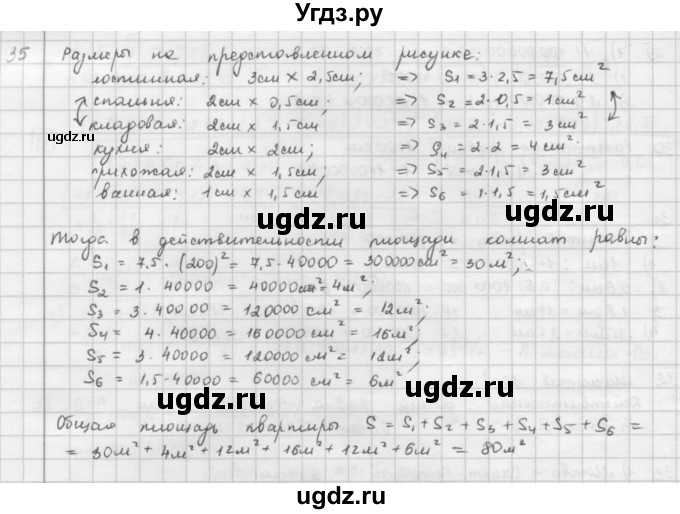 Угдз.ру
35 Размеры на представленном рисунке:
гостинная: 3см × 2,5см; => S₁ = 3·2,5 = 7,5см²
спальня: 2см × 0,5см; => S₂ = 2·0,5 = 1см²
кладовая: 2см × 1,5см => S₃ = 2·1,5 = 3см²
кухня: 2см × 2см; => S₄ = 2·2 = 4см²
прихожая: 2см × 1,5см; => S₅ = 2·1,5 = 3см²
ванная: 1см × 1,5см => S₆ = 1·1,5 = 1,5см²
Тогда в действительности площади комнат равны:
S₁ = 7,5·(200)² = 7,5·40000 = 300000см² = 30м²;
S₂ = 1·40000 = 40000см² = 4м²;
S₃ = 3·40000 = 120000см² = 12м²;
S₄ = 4·40000 = 160000см² = 16м²;
S₅ = 3·40000 = 120000см² = 12м²;
S₆ = 1,5·40000 = 60000см² = 6м²
Общая площадь квартиры S = S₁ + S₂ + S₃ + S₄ + S₅ + S₆ =
= 30м² + 4м² + 12м² + 16м² + 12м² + 6м² = 80м²
ugdz.ru
ugdz.ru
ugdz.ru
ugdz.ru
ugdz.ru
ugdz.ru
ugdz.ru
ugdz.ru
ugdz.ru
ugdz.ru
ugdz.ru